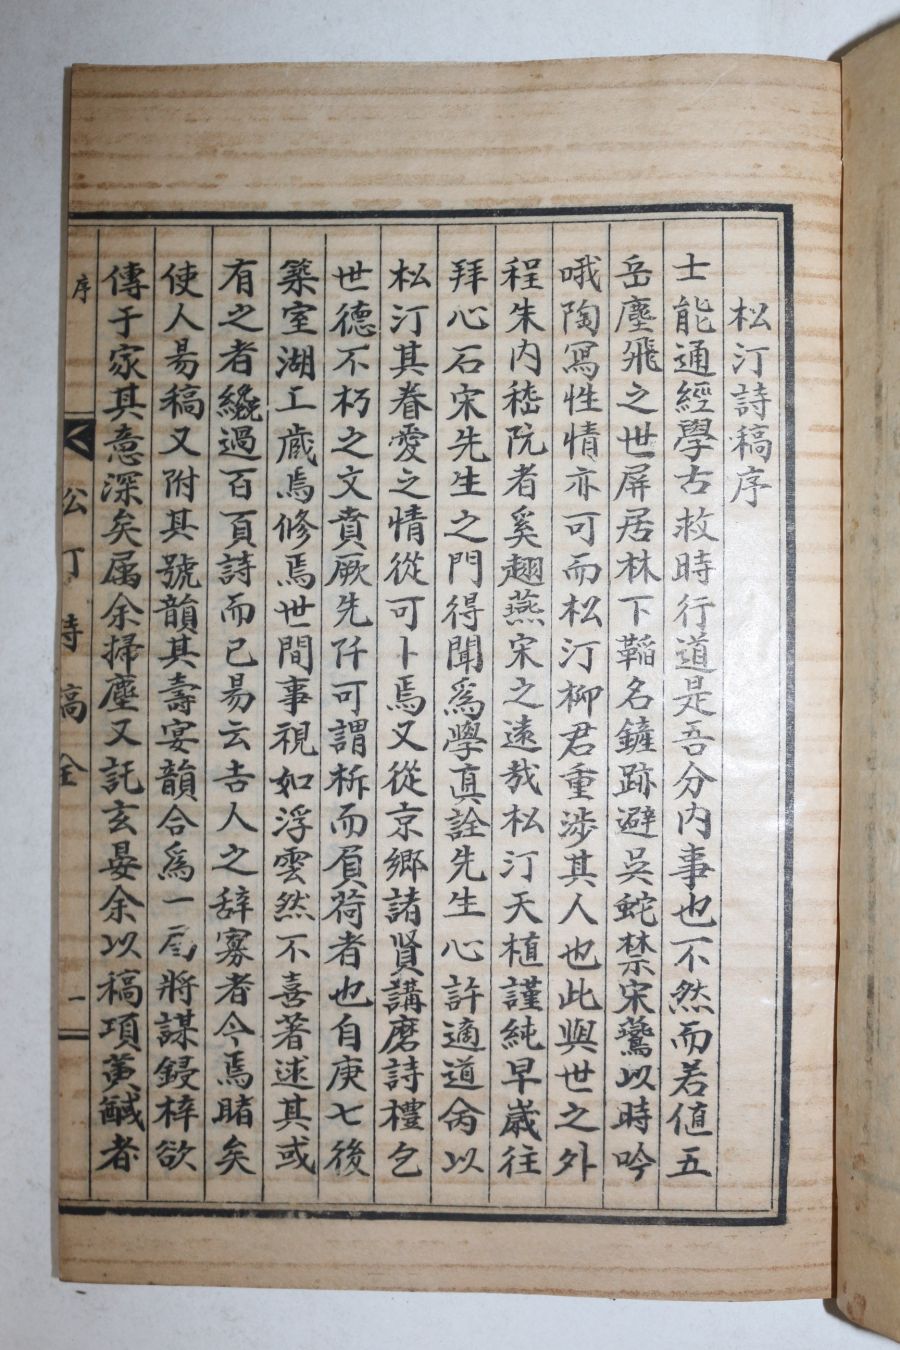 松汀詩稿序
士能通經學古救時行道是吾分內事也不然而若値五
岳塵飛之世屛居林下韜名鏟跡避吳蛇禁宋鶯以時吟
哦陶寫性情亦可而松汀柳君重涉其人也此與世之外
程朱內嵇阮者奚趐燕宋之遠哉松汀天植謹純早歲往
拜心石宋先生之門得聞爲學眞詮先生心許適道肏以
松汀其眷愛之情從可卜焉又從京鄕諸賢講磨詩禮乞
世德不朽之文賁厥先阡可謂析而負荷者也自庚七後
築室湖工藏焉修焉世間事視如浮雲然不喜著述其或
有之者纔過百頁詩而已易云吉人之辞寡者今焉睹矣
使人昜稿又附其號韻其壽宴韻合爲一局將謀鋟梓欲
傳于家其意深矣属余掃塵又託玄晏余以稿項黃馘者
序
松汀詩稿全
一